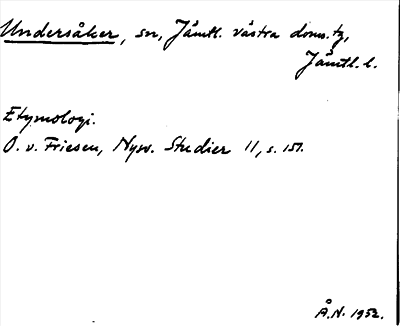 Undersåker, sn, Jämtl. västra doms.tg,
Jämtl. l.
Etymologi.
O. v. Friesen, Nysv. Studier 11, s. 151.
Å.N. 1952.